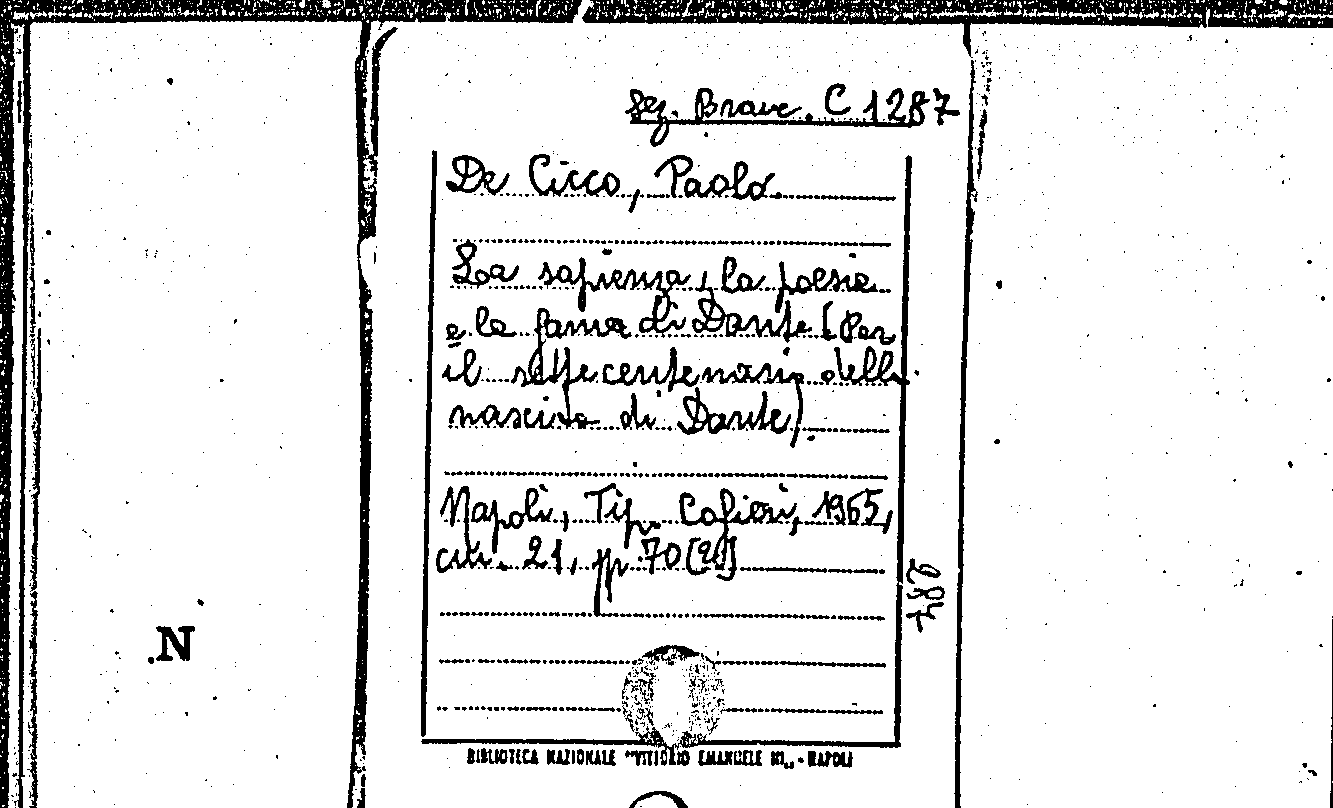 Sez. Branc. C 1287
De Cicco, Paolo.
La sapienza, la poesia
e la fama di Dante (Per
il settecentenario della
nascita di Dante).
Napoli, Tip. Cafieri, 1965,
cm. 21, pp. 70 [2]
287
N
BIBLIOTECA NAZIONALE "VITTORIO EMANUELE III" - NAPOLI